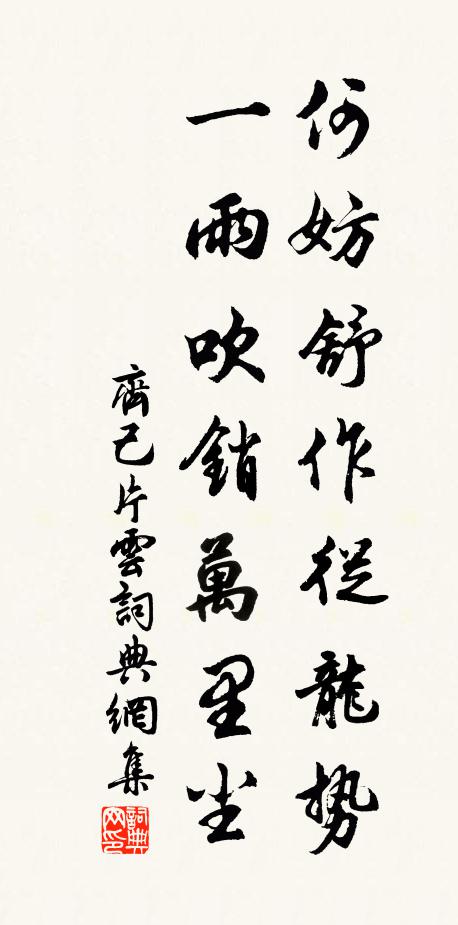 何妨舒作從龍勢
一雨吹銷萬里尘
齊己片雲詞典網集
詞典
网印